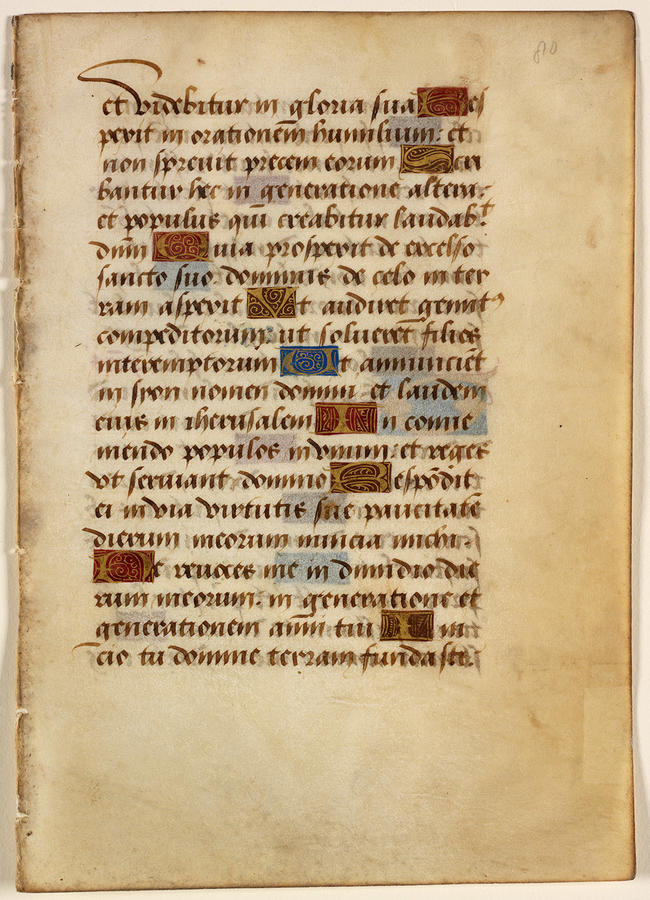 80
et videbitur in gloria sua Res
pexit in orationem humilium: et
non sprevit precem eorum Scri
bantur hec in generatione altera:
et populus qui creabitur laudabt
dnm Quia prospexit de excelso
sancto suo: dominus de celo in ter
ram aspexit Vt audiret gemit9
compeditorum: ut solveret filios
interemptorum Vt annunciet
in syon nomen domini: et laudem
eius in iherusalem In conve
niendo populos in unum: et reges
vt serviant domino Respodit
ei in via virtutis sue paucitate
dierum meorum nuncia michi.
Ne revoces me in dimidio die
rum meorum: in generatione et
generationem anni tui In in
cio tu domine terram fundasti: